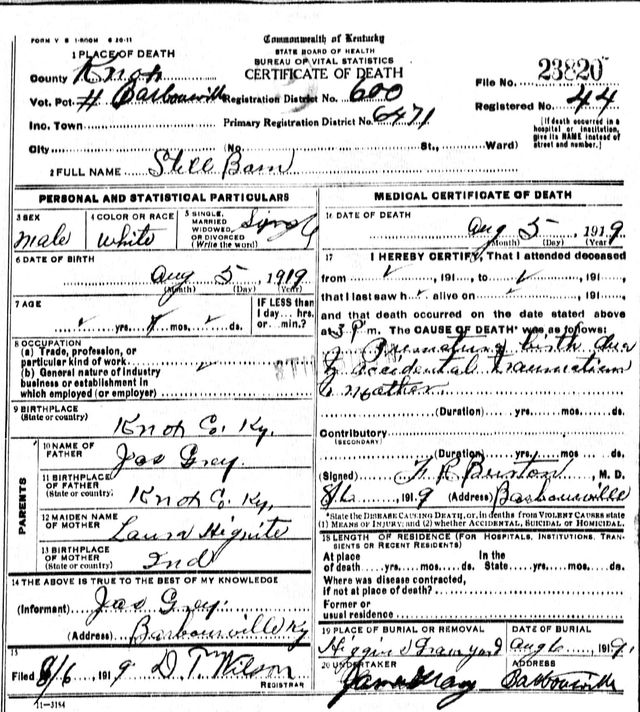 FORM V S 1-ROOM 6 20-11
Commonwealth of Kentucky
STATE BOARD OF HEALTH
BUREAU OF VITAL STATISTICS
CERTIFICATE OF DEATH
1 PLACE OF DEATH
County Knox
Vot. Pct. # Barbourville Registration District No. 600
File No. 23820
Inc. Town Primary Registration District No. 6471
Registered No. 44
City (No St., Ward)
[If death occurred in a hospital or institution, give its NAME instead of street and number.]
2 FULL NAME Still Born
PERSONAL AND STATISTICAL PARTICULARS
3 SEX
male
4 COLOR OR RACE
white
5 SINGLE, MARRIED WIDOWED, OR DIVORCED (Write the word)
Single
6 DATE OF BIRTH
Aug 5, 1919
(Month) (Day) (Year)
7 AGE
yrs. mos. ds.
IF LESS than 1 day... hrs. or... min.?
8 OCCUPATION
(a) Trade, profession, or particular kind of work
(b) General nature of industry business or establishment in which employed (or employer)
9 BIRTHPLACE
(State or country) Knox Co. Ky.
PARENTS
10 NAME OF FATHER
Jas Grey.
11 BIRTHPLACE OF FATHER
(State or country) Knox Co. Ky,
12 MAIDEN NAME OF MOTHER
Laura Hignite
13 BIRTHPLACE OF MOTHER
(State or country) Ind
14 THE ABOVE IS TRUE TO THE BEST OF MY KNOWLEDGE
(Informant) Jas Grey.
(Address) Barbourville Ky
15
Filed 8/6 1919 D. T. Wilson
REGISTRAR
11-3184
MEDICAL CERTIFICATE OF DEATH
16 DATE OF DEATH
Aug 5, 1919
(Month) (Day) (Year)
17 I HEREBY CERTIFY, That I attended deceased
from 191 , to 191 ,
that I last saw h alive on 191 ,
and that death occurred on the date stated above
at 3 P m. The CAUSE OF DEATH* was as follows:
Premature birth due
accidental traumatism
Mother
(Duration) yrs. mos. ds.
Contributory
(SECONDARY)
(Duration) yrs. mos. ds.
(Signed) Burton M. D.
8/6 1919 (Address) Barbourville
*State the DISEASE CAUSING DEATH, or, in deaths from VIOLENT CAUSES state (1) MEANS OF INJURY; and (2) whether ACCIDENTAL, SUICIDAL or HOMICIDAL.
18 LENGTH OF RESIDENCE (FOR HOSPITALS, INSTITUTIONS, TRANSIENTS OR RECENT RESIDENTS)
At place of death yrs. mos. ds. In the State yrs. mos. ds.
Where was disease contracted, if not at place of death?
Former or usual residence
19 PLACE OF BURIAL OR REMOVAL
Higgins Graveyard
DATE OF BURIAL
Aug 6 1919
20 UNDERTAKER
ADDRESS
Barbourville